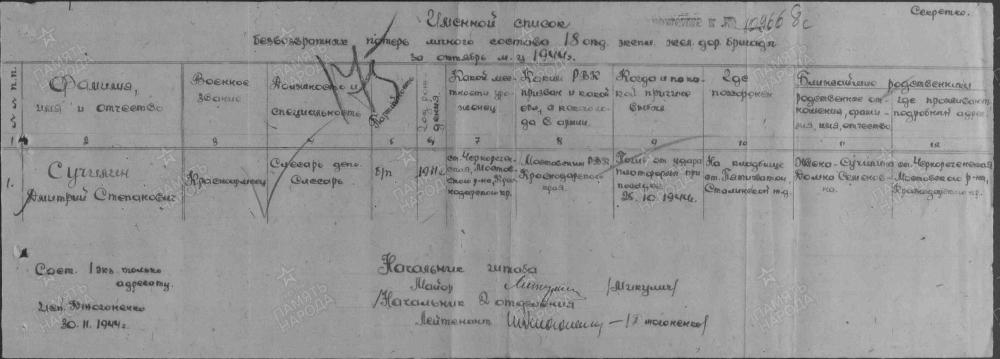 Секретно.
10966 8с
Именной список
безвозвратных потерь личного состава 18 отд. экспл. жел. дор. бригады
за октябрь м-ц 1944г.
Фамилия,
имя и отчество
Военное
звание
Должность и
специальность
Партийность
Год рождения.
Какой местности уроженец
Каким РВК
призван и какой
обл., а
до в армии.
Когда и по какой причине
выбыл
Где
похоронен
Ближайшие родственники
родственное отношение, фамилия, имя, отчество
где проживает
подробный адрес
1 2 5 6 7 8 9 10 11 12
1.
Сучилин
Дмитрий Степанович
Красноармеец
Слесарь депо
Слесарь
б/п
1911г.
ст. Чернореченская, Мостовского р-на, Краснодарского кр.
Мостовским РВК
Краснодарского
края.
Погиб от удара
платформы при
поездке
25.10.1944г.
На кладбище
ст.
Сталинской ж.д.
Жена - Сучилина
Домна Семеновна.
ст. Чернореченская
Мостовского р-на,
Краснодарского кр.
Сост. 1 экз. только
адресату.
Исп. Втогоненко
30.11.1944г.
Начальник штаба
Майор /Микулич/
Начальник 2 отделения
Лейтенант
ПАМЯТЬ
НАРОДА